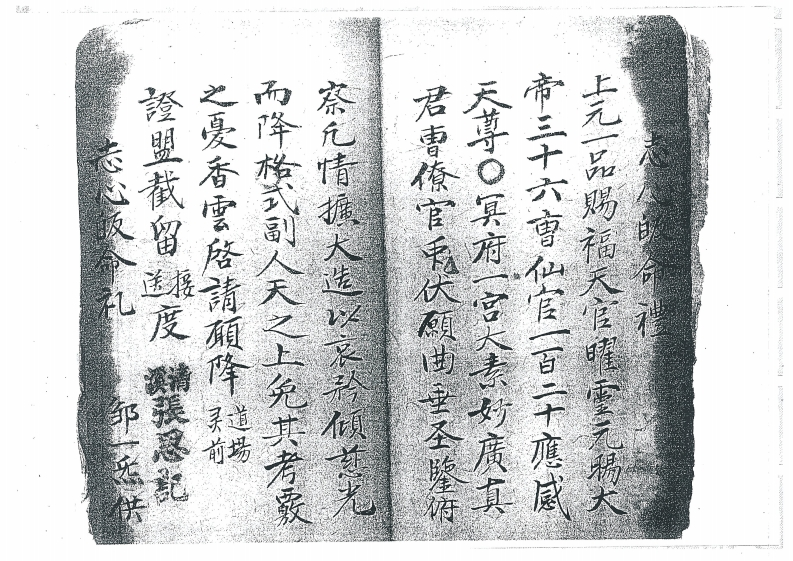 志心皈命禮
上元一品賜福天官曜靈元陽大
帝三十六曹仙官一百二十應感
天尊〇冥府一宮大素妙廣真
君曹僚官兎伏願曲垂圣鑒俯
察凡情擴大造以哀矜傾慈光
而降格式副人天之上免其考覈
之憂香雲啓請願降道場灵前
證盟截留接送度
清溪張恩記
志心皈命礼
邹一炁供